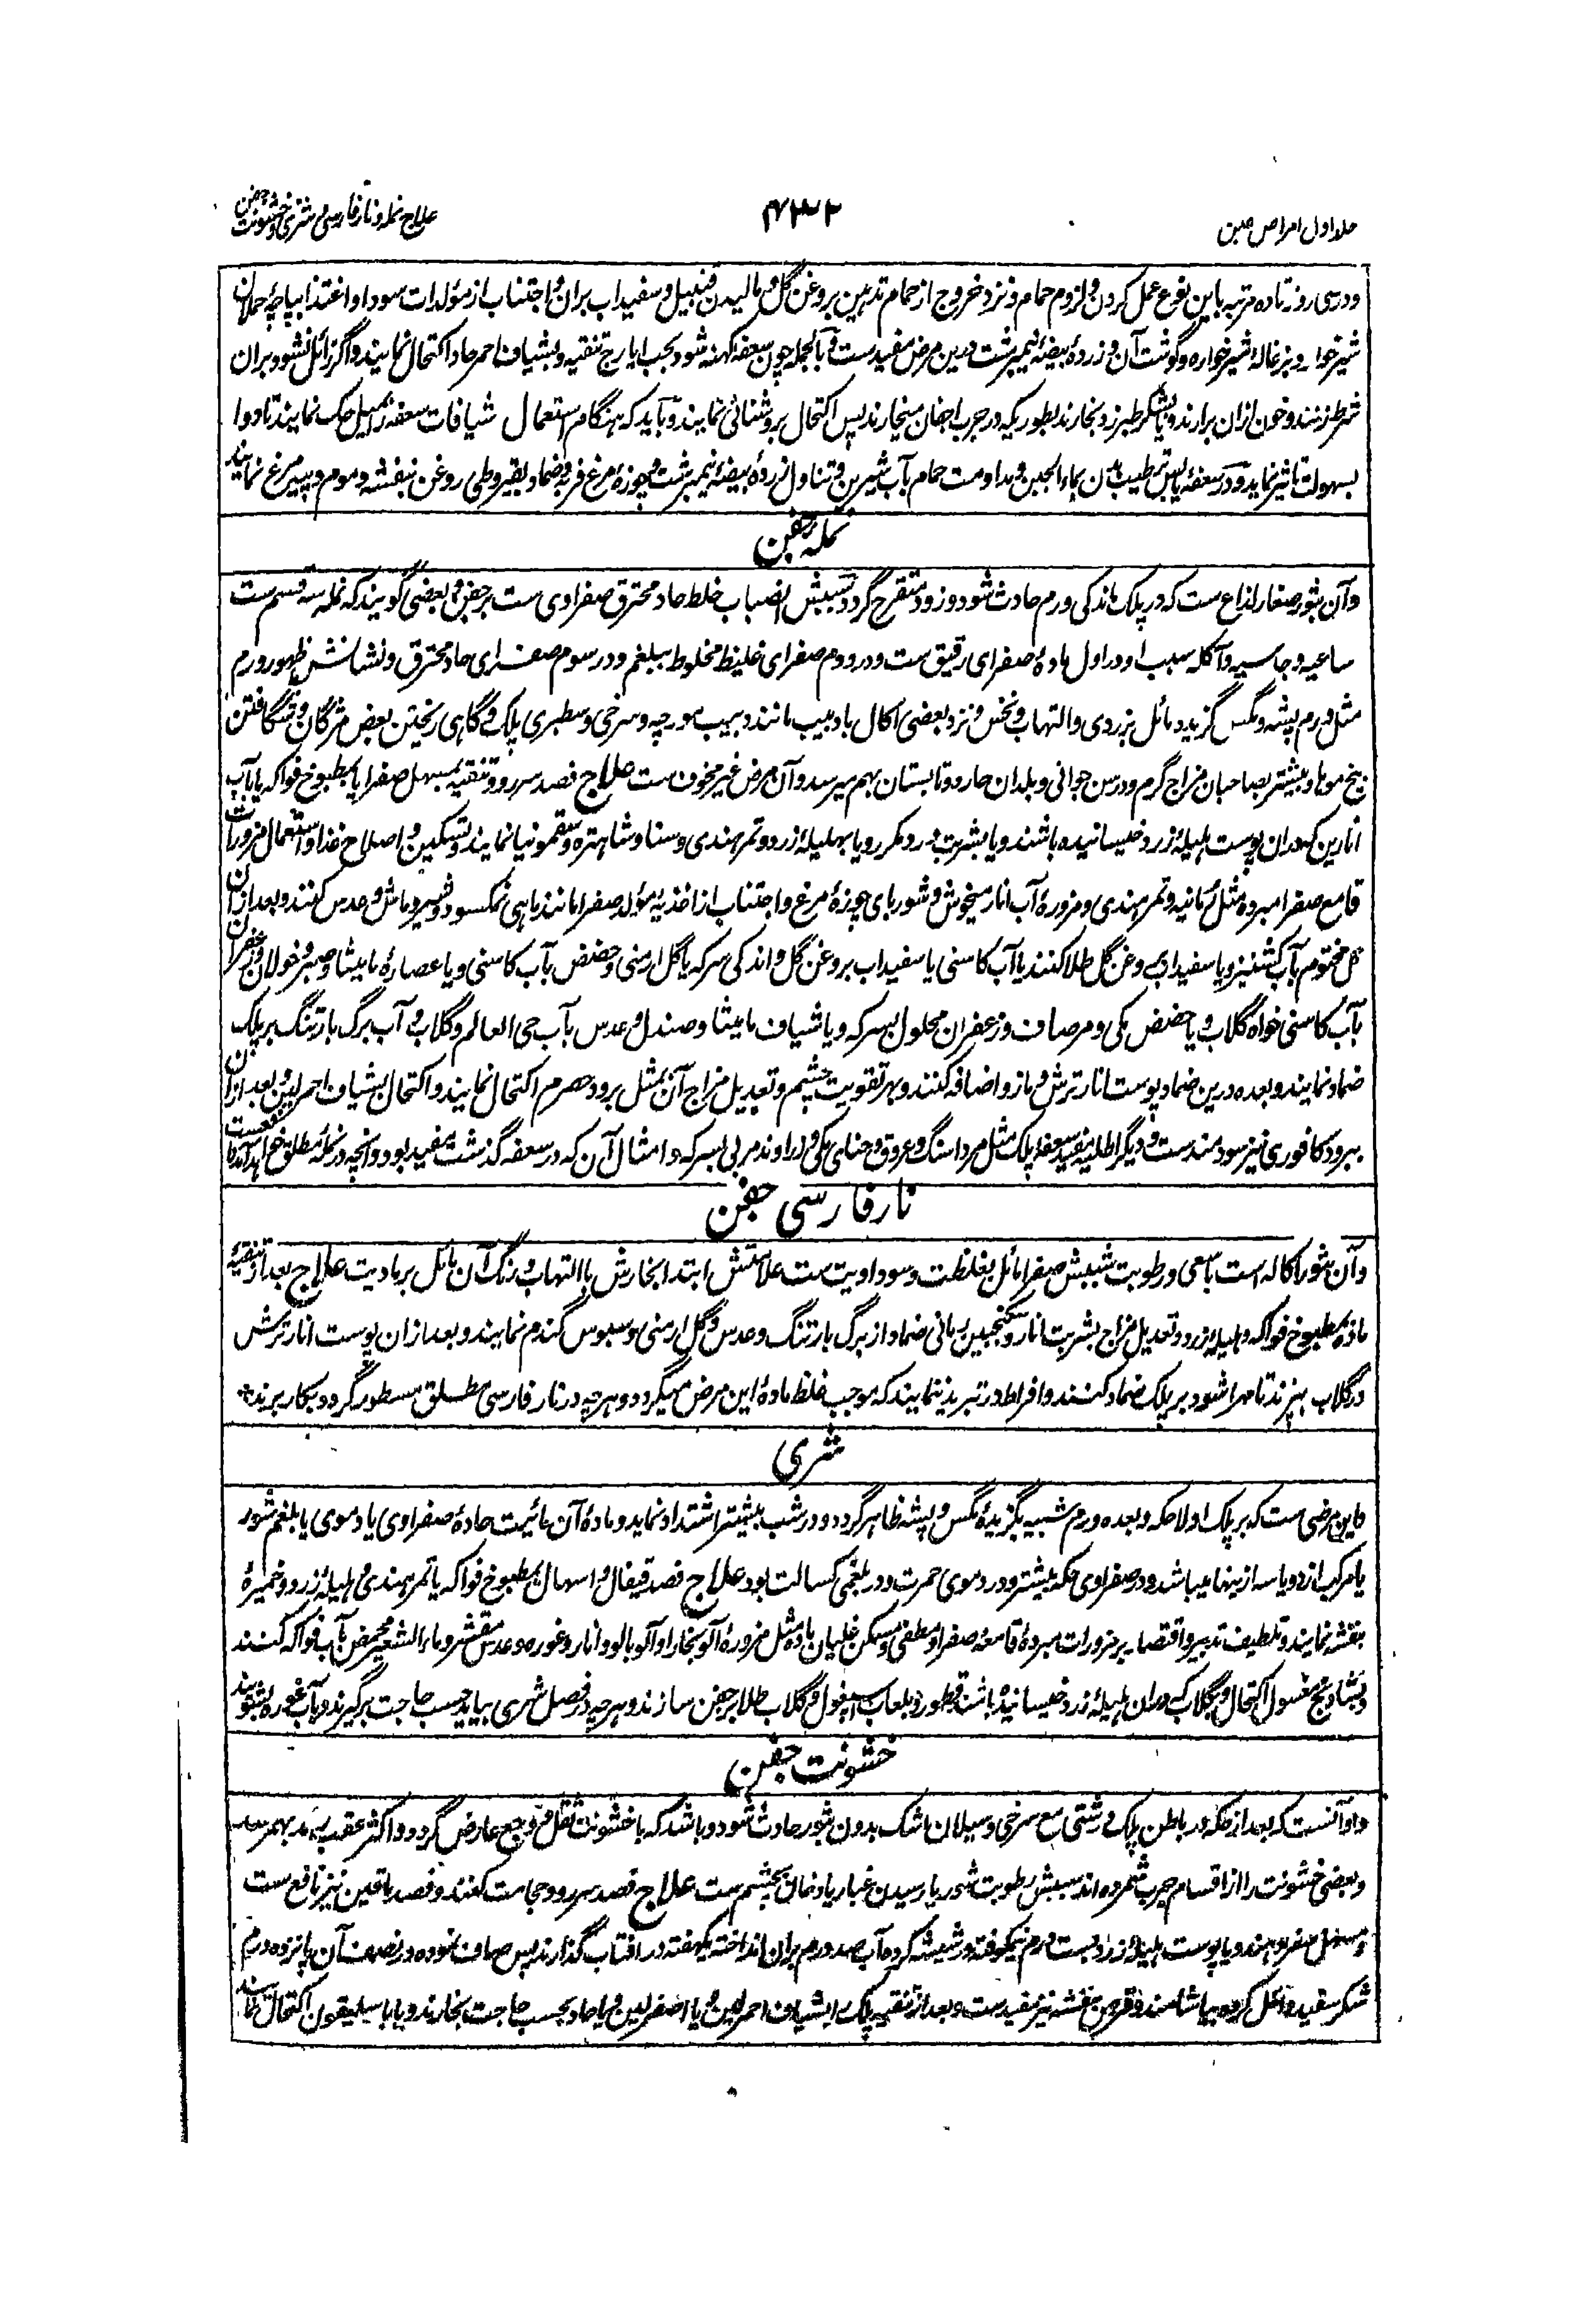 جلد اول امراض جفن
۴۳۲
علاج نمله و نار فارسی و شری و خشونت جفن
و در سی روز تا ده مرتبه باین نوع عمل کردن و لزوم حمام و نزد خروج از حمام تدهین بروغن گل و مالیدن قنبیل و سفیداب بران و اجتناب از مولدات سودا و اغتذا بپاچهٔ حملان
شیرخوار و بزغالهٔ شیرخواره و گوشت آن و زردهٔ بیضهٔ نیمبرشت درین مرض مفیدست و بالجمله چون سعفه کهنه شود بحب ایارج تنقیه و بشیاف احمر حاد اکتحال نمایند و اگر زائل نشود بران
شرط زنند و خون ازان برارند و یا بشکر طبرزد بخارند بطوریکه در جرب اجفان میخارند پس اکتحال بروشنائی نمایند و باید که هنگام استعمال شیافات سعفه را بمیل حک نمایند تا دوا
بسهولت تاثیر نماید و در سعفهٔ یابس ترطیب بدن بماء الجبن و مداومت حمام آب شیرین و تناول زردهٔ بیضهٔ نیمبرشت و چوزهٔ مرغ فربه و ضماد بقیروطی روغن بنفشه و موم و پیه مرغ نمایند
نمله جفن
و آن بثور صغار لذاع ست که در پلک باندکی ورم حادث شود و زود متقرح گردد سببش انصباب خلط حاد محترق صفراوی ست بر جفن و بعضی گویند که نمله سه قسم ست
ساعیه و جاسیه و آکله سبب او در اول مادهٔ صفرای رقیق ست و در دوم صفرای غلیظ مخلوط ببلغم و در سوم صفرای حاد محترق و نشانش ظهور ورم
مثل ورم پشه و مگس گزیده مائل بزردی و التهاب و نخس و نزد بعضی اکال با دبیب مانند دبیب مورچه و سرخی و سطبری پلک و گاهی ریختن بعض مژگان و شگافتن
بیخ موها و بیشتر بصاحبان مزاج گرم و در سن جوانی و بلدان حار و تابستان بهم میرسد و آن مرض غیر مخوف ست علاج فصد سررو و تنقیه بمسهل صفرا یا بمطبوخ فواکه یا بآب
انارین که دران پوست هلیلهٔ زرد خیسانیده باشند و یا بشربت ورد مکرر و یا بهلیلهٔ زرد و تمر هندی و سنا و شاهتره و سقمونیا نمایند و تسکین و اصلاح غذا و استعمال مزورات
قامع صفرا مبرده مثل رمانیه و تمر هندی و مزورهٔ آب انار میخوش و شوربای چوزهٔ مرغ و اجتناب از اغذیه مولد صفرا مانند ماهی نمکسود و شیر و ماش و عدس کنند و بعد ازان
گل مختوم بآب کشنیز و یا سفیداب بروغن گل طلا کنند یا آب کاسنی یا سفیداب بروغن گل و اندکی سرکه یا گل ارمنی و حضض بآب کاسنی و یا عصارهٔ مامیثا و صبر و خولان و زعفران
بآب کاسنی خواه گلاب و یا حضض مکی و مرصاف و زعفران محلول بسرکه و یا شیاف مامیثا و صندل و عدس بآب حی العالم و گلاب و آب برگ بارتنگ بر پلک
ضماد نمایند و بعده درین ضماد پوست انار ترش و مازو اضافه کنند و بهر تقویت چشم و تعدیل مزاج آن بمثل برود حصرم اکتحال نمایند و اکتحال بشیاف احمر لین و بعد ازان
ببرود کافوری نیز سودمندست و دیگر اطلیهٔ مفید سعفهٔ پلک مثل مرداسنگ و عروق و حنای مکی و زراوند مربی بسرکه و امثال آن که در سعفه گذشت مفید بود و آنچه در نملهٔ مطلق خواهد آمد
نار فارسی جفن
و آن بثور اکاله است با سعی و رطوبت سببش صفرا مائل بغلظت و سوداویت ست علامتش ابتدا بخارش با التهاب و رنگ آن مائل برمادیت علاج بعد از تنقیهٔ
ماده بمطبوخ فواکه و هلیلهٔ زرد و تعدیل مزاج بشربت انار و سکنجبین رمانی ضماد از برگ بارتنگ و عدس و گل ارمنی و سبوس گندم نمایند و بعد ازان پوست انار ترش
در گلاب بپزند تا مهرا شود بر پلک ضماد کنند و افراط در تبرید ننمایند که موجب غلظ مادهٔ این مرض میگردد و هرچه در نار فارسی مطلق مسطور گردد بکار برند
شری
و این مرضی ست که بر پلک اولا حکه و بعده ورم شبیه بگزیدهٔ مگس و پشه ظاهر گردد و در شب بیشتر اشتداد نماید و مادهٔ آن مائیت حادهٔ صفراوی یا دموی یا بلغم شور
یا مرکب از دو یا سه ازینها میباشد و در صفراوی حکه بیشتر و در دموی حمرت و در بلغمی کسالت بود علاج فصد قیفال و اسهال بمطبوخ فواکه یا تمر هندی و هلیلهٔ زرد و خمیرهٔ
بنفشه نمایند و تلطیف تدبیر و اقتصار بر مزورات مبردهٔ قامعهٔ صفرا و مطفی و مسکن غلیان ماده مثل مزورهٔ آلو بخارا و آلو بالو و انار و غوره و عدس مقشر و ماء الشعیر محمض بآب فواکه کنند
و بشادنج مغسول اکتحال و بگلاب که دران هلیلهٔ زرد خیسانیده باشند قطور و بلعاب اسپغول و گلاب طلا بر جفن سازند و هرچه در فصل شری بیاید حسب حاجت برگیرند و بآب غوره بشویند
خشونت جفن
و او آنست که بعد از حکه در باطن پلک درشتی مع سرخی و سیلان اشک بدون بثور حادث شود و باشد که با خشونت ثقل و وجع عارض گردد و اکثر عقب رمد بهم رسد
و بعضی خشونت را از اقسام جرب شمرده اند سببش رطوبت شور یا رسیدن غبار یا دخان بچشم ست علاج فصد سررو و حجامت کنند و فصد ماقین نیز نافع ست
و مسهل صفرا دهند و یا پوست هلیلهٔ زرد بست درم نیمکوفته در شیشه کرده آب صد درم بران انداخته یکهفته در آفتاب گذارند پس صاف نموده در نصف آن پانزده درم
شکر سفید داخل کرده بیاشامند و قرص بنفشه نیز مفیدست و بعد از تنقیه پلک را بشیاف احمر لین و یا اخضر لین و یا حاد بحسب حاجت بخارند و یا باسلیقون اکتحال